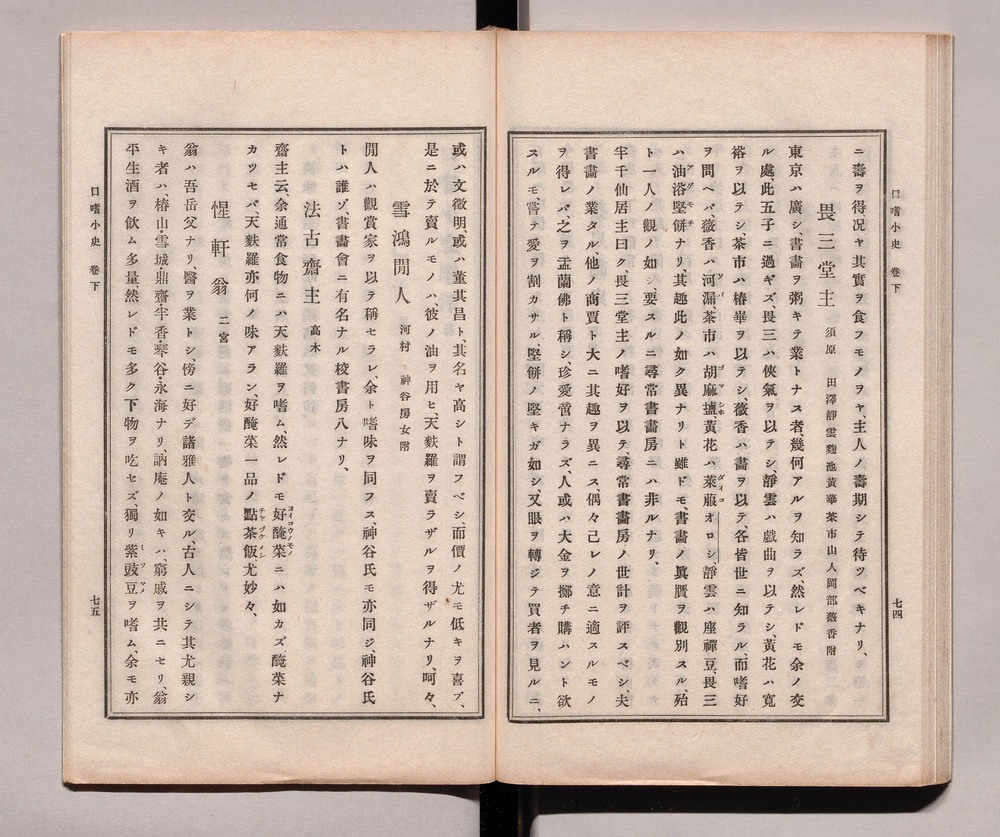 口嗜小史 卷下 七四
ニ壽ヲ得况ヤ其實ヲ食フモノヲヤ、主人ノ壽期シテ待ツベキナリ、
畏三堂主 須原 田澤靜雲麹池黃華茶市山人岡部薇香附
東京ハ廣シ、書畫ヲ粥キテ業トナス者、幾何アルヲ知ラズ、然レドモ余ノ交
ル處、此五子ニ過ギズ、畏三ハ俠氣ヲ以テシ、靜雲ハ戲曲ヲ以テシ、黃花ハ寬
裕ヲ以テシ、茶市ハ椿畢ヲ以テシ、薇香ハ書ヲ以テ、各皆世ニ知ラル、而嗜好
ヲ問ヘバ、薇香ハ河漏茶市ハ胡麻塩、黃花ハ萊菔オロシ、靜雲ハ座禪豆、畏三
ハ油浴堅餅ナリ、其趣此ノ如ク異ナリト雖ドモ、書畫ノ眞贋ヲ觀別スル、殆
ト一人ノ觀ノ如シ、要スルニ尋常書畫房ニハ非ルナリ、
半千仙居主曰ク、畏三堂主ノ嗜好ヲ以テ、尋常書畫房ノ世計ヲ評スベシ、夫
書畫ノ業タル、他ノ商賈ト大ニ其趣ヲ異ニス、偶々己レノ意ニ適スルモノ
ヲ得レバ、之ヲ盂蘭佛ト稱シ、珍愛啻ナラズ、人或ハ大金ヲ擲チ購ハント欲
スルモ、嘗テ愛ヲ割カサル、堅餅ノ堅キガ如シ、又眼ヲ轉ジテ買者ヲ見ルニ、
或ハ文徵明、或ハ董其昌ト、其名ヤ高シト謂フベシ、而價ノ尤モ低キヲ喜ブ、
是ニ於テ賣ルモノハ、彼ノ油ヲ用ヒ、天麩羅ヲ賣ラザルヲ得ザルナリ、呵々、
雪鴻閒人 河村 神谷房女附
閒人ハ觀賞家ヲ以テ稱セラレ、余ト嗜味ヲ同フス、神谷氏モ亦同ジ、神谷氏
トハ誰ゾ、書畫會ニ有名ナル校書房八ナリ、
法古齋主 高木
齋主云、余通常食物ニハ天麩羅ヲ嗜ム、然レドモ好醃菜ニハ如カズ、醃菜ナ
カツセバ、天麩羅亦何ノ味アラン、好醃菜一品ノ點茶飯尤妙々、
惺軒翁 二宮
翁ハ吾岳父ナリ、醫ヲ業トシ、傍ニ好デ諸雅人ト交ル、古人ニシテ其尤親シ
キ者ハ、椿山・雪城・鼎齋・半香・琴谷・永海ナリ、訥庵ノ如キハ窮戚ヲ共ニセリ、翁
平生酒ヲ飮ム多量然レドモ多ク下物ヲ吃セズ、獨リ紫豉豆ヲ嗜ム、余モ亦
口嗜小史 卷下 七五